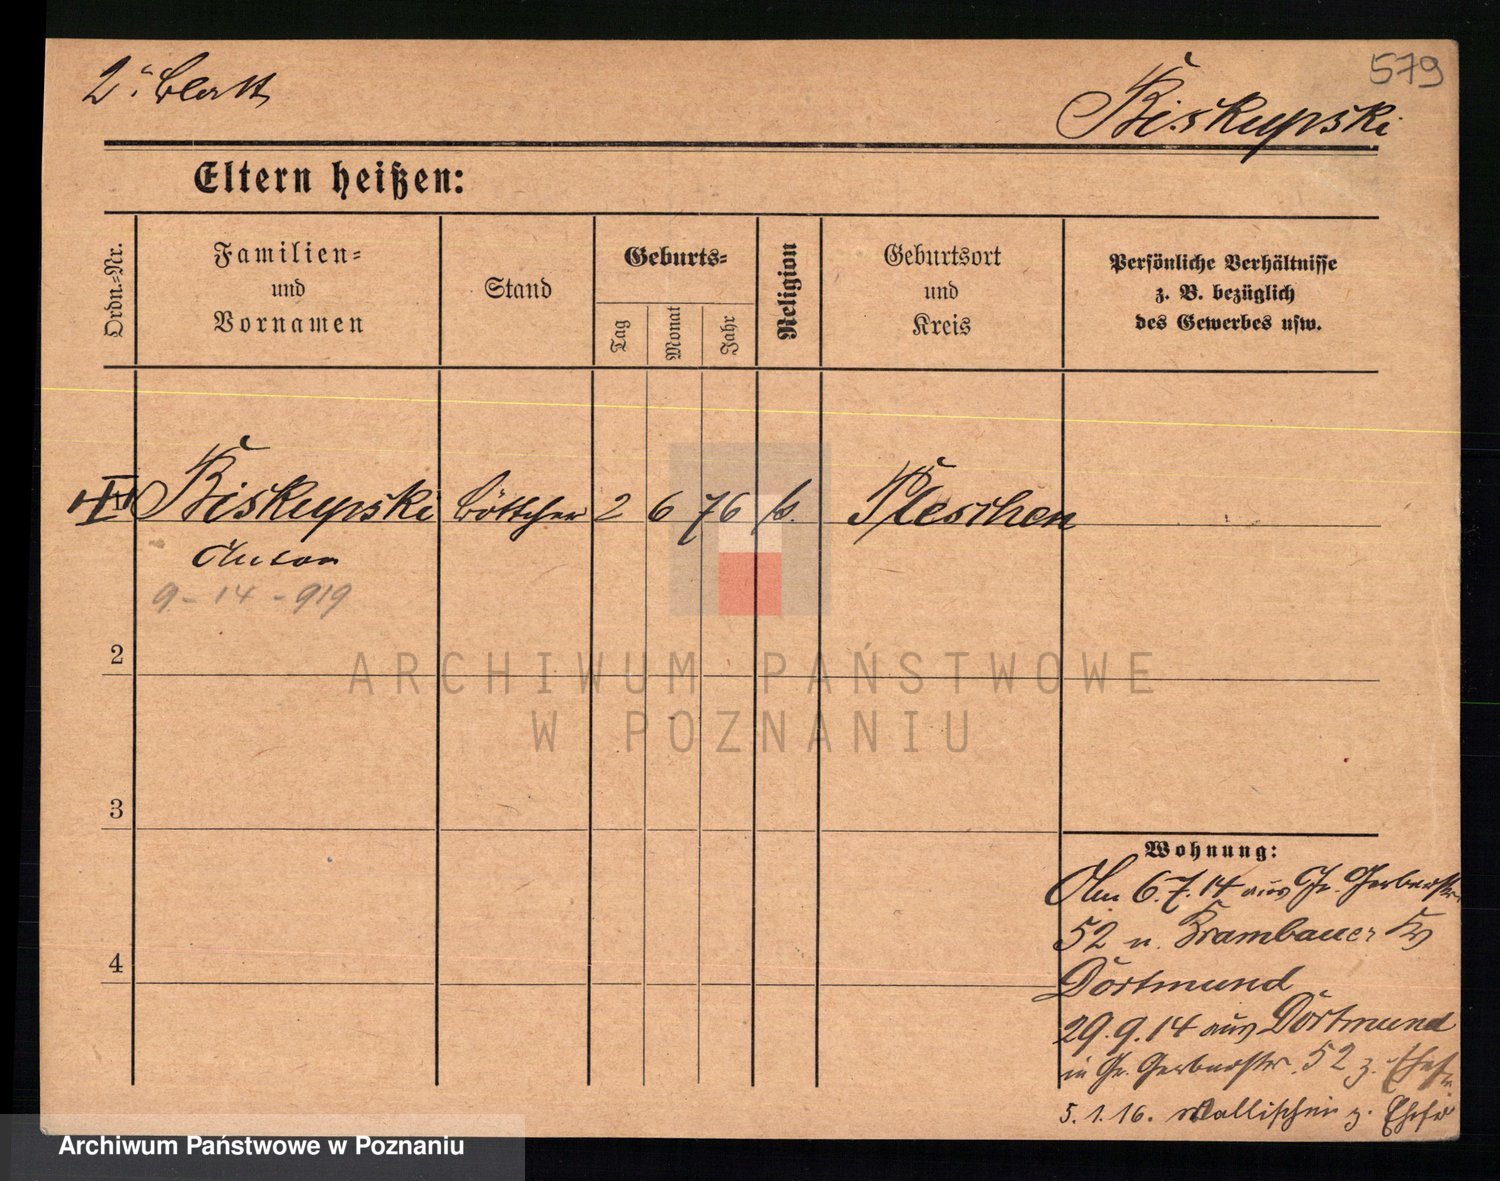 579
2. Blatt
Biskupski
Eltern heißen:
Ordn.-Nr.
Familien-
und
Vornamen
Stand
Geburts-
Tag
Monat
Jahr
Religion
Geburtsort
und
Kreis
Persönliche Verhältnisse
z. B. bezüglich
des Gewerbes usw.
Biskupski Böttcher 2 6 76 k. Pleschen
Anton
9-14-919
2
3
4
ARCHIWUM PAŃSTWOWE
W POZNANIU
Wohnung:
Am 6.7.14 aus Gr. Gerberstr.
52 n. Krambauer
Dortmund
29.9.14 aus Dortmund
in Gr. Gerberstr. 52 z.
5.1.16. Wallischei z. Ehefr
Archiwum Państwowe w Poznaniu